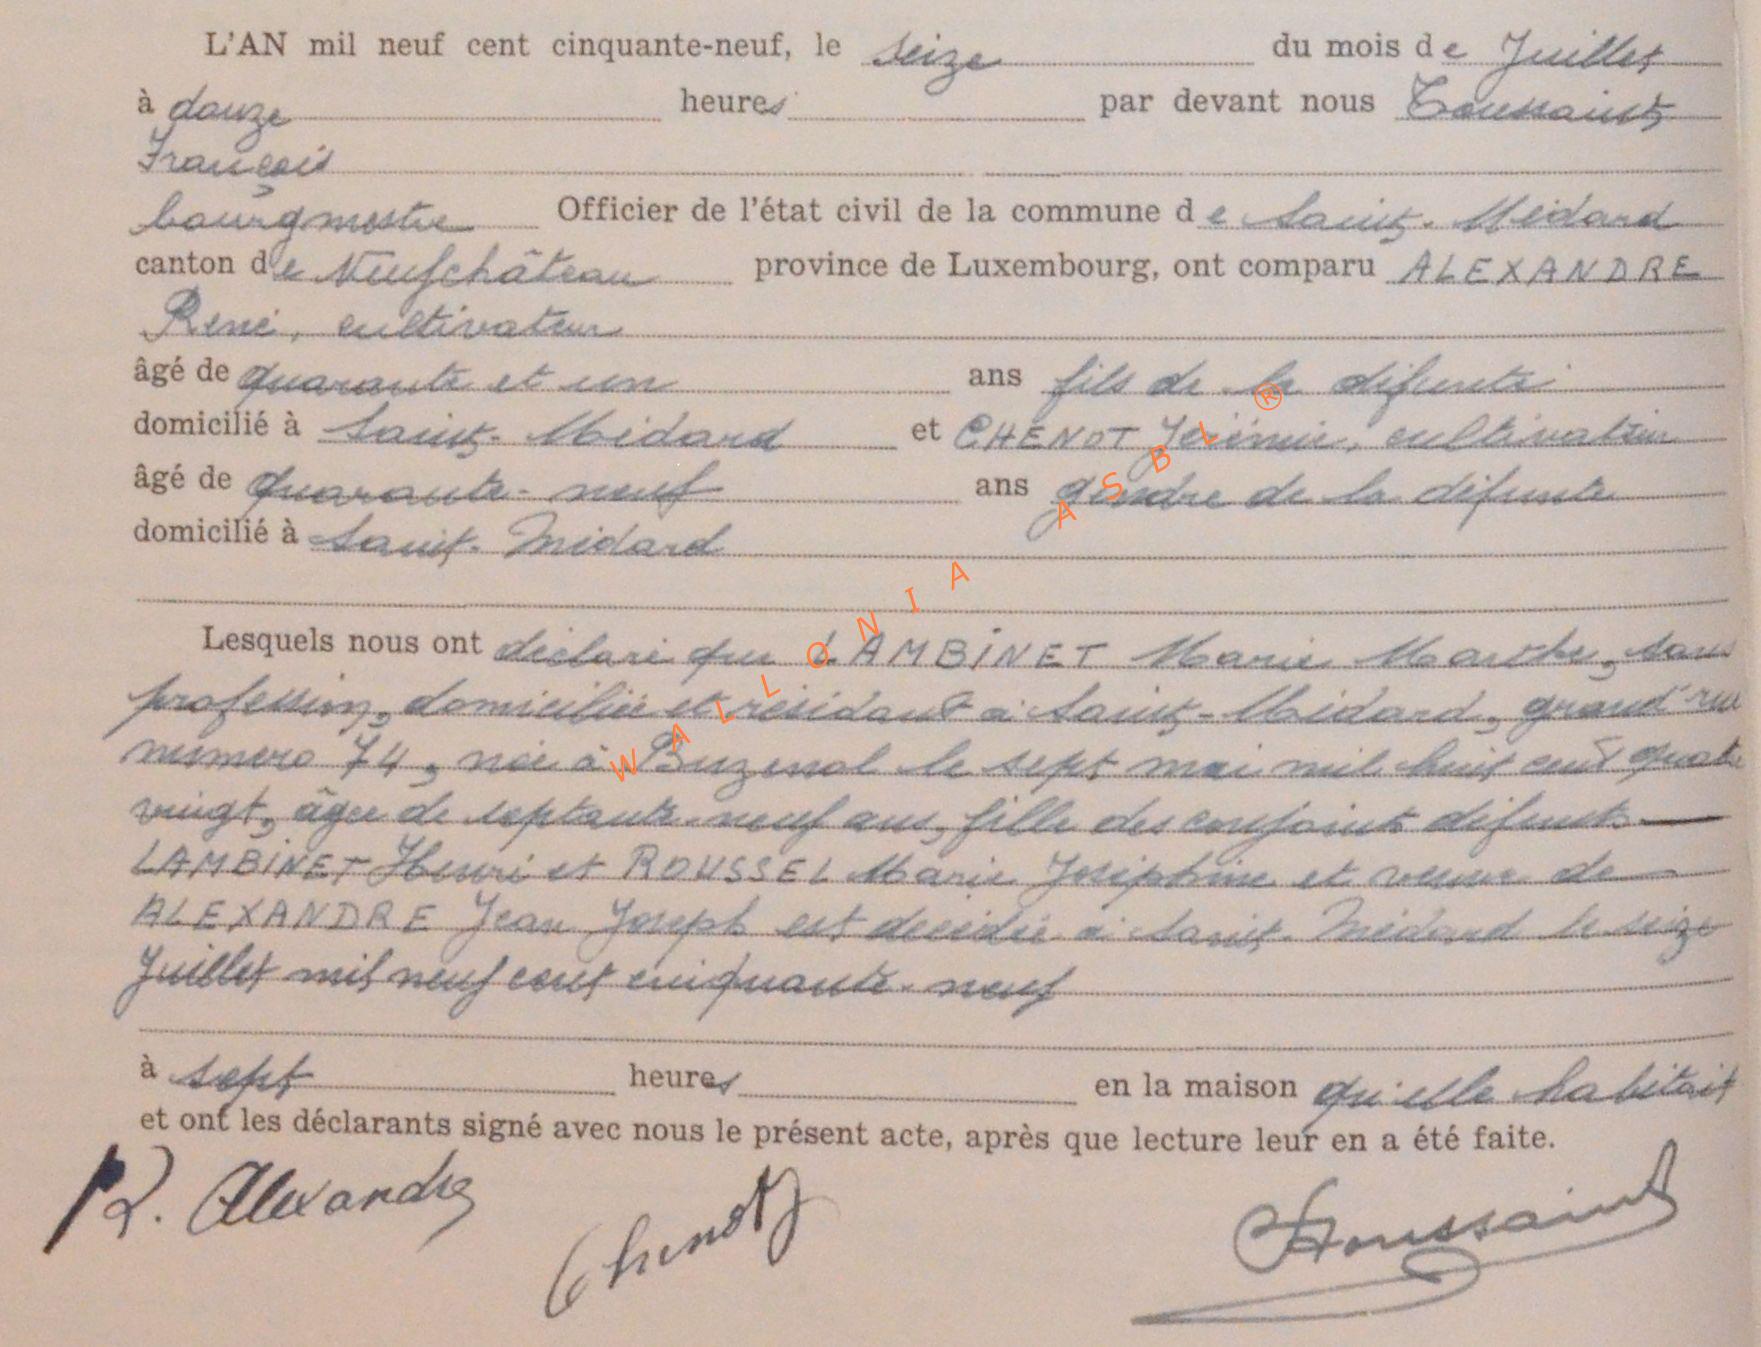 L'AN mil neuf cent cinquante-neuf, le seize du mois de Juillet
à douze heures par devant nous Toussaint
François
bourgmestre Officier de l'état civil de la commune de Saint-Médard
canton de Neufchâteau province de Luxembourg, ont comparu ALEXANDRE
René, cultivateur
âgé de quarante et un ans fils de la défunte
domicilié à Saint-Médard et CHENOT Jérémie, cultivateur
âgé de quarante-neuf ans gendre de la défunte
domicilié à Saint-Médard
Lesquels nous ont déclaré que LAMBINET Marie Marthe, sans
profession, domiciliée et résidant à Saint-Médard, grand'rue
numéro 74, née à Buzenol le sept mai mil huit cent quatre
vingt, âgée de septante-neuf ans, fille des conjoints défunts
LAMBINET Henri et ROUSSEL Marie Joséphine et veuve de
ALEXANDRE Jean Joseph est décédée à Saint-Médard le seize
Juillet mil neuf cent cinquante-neuf
à sept heures en la maison qu'elle habitait
et ont les déclarants signé avec nous le présent acte, après que lecture leur en a été faite.
R. Alexandre Chenot Toussaint
WALLONIA ASBL ®